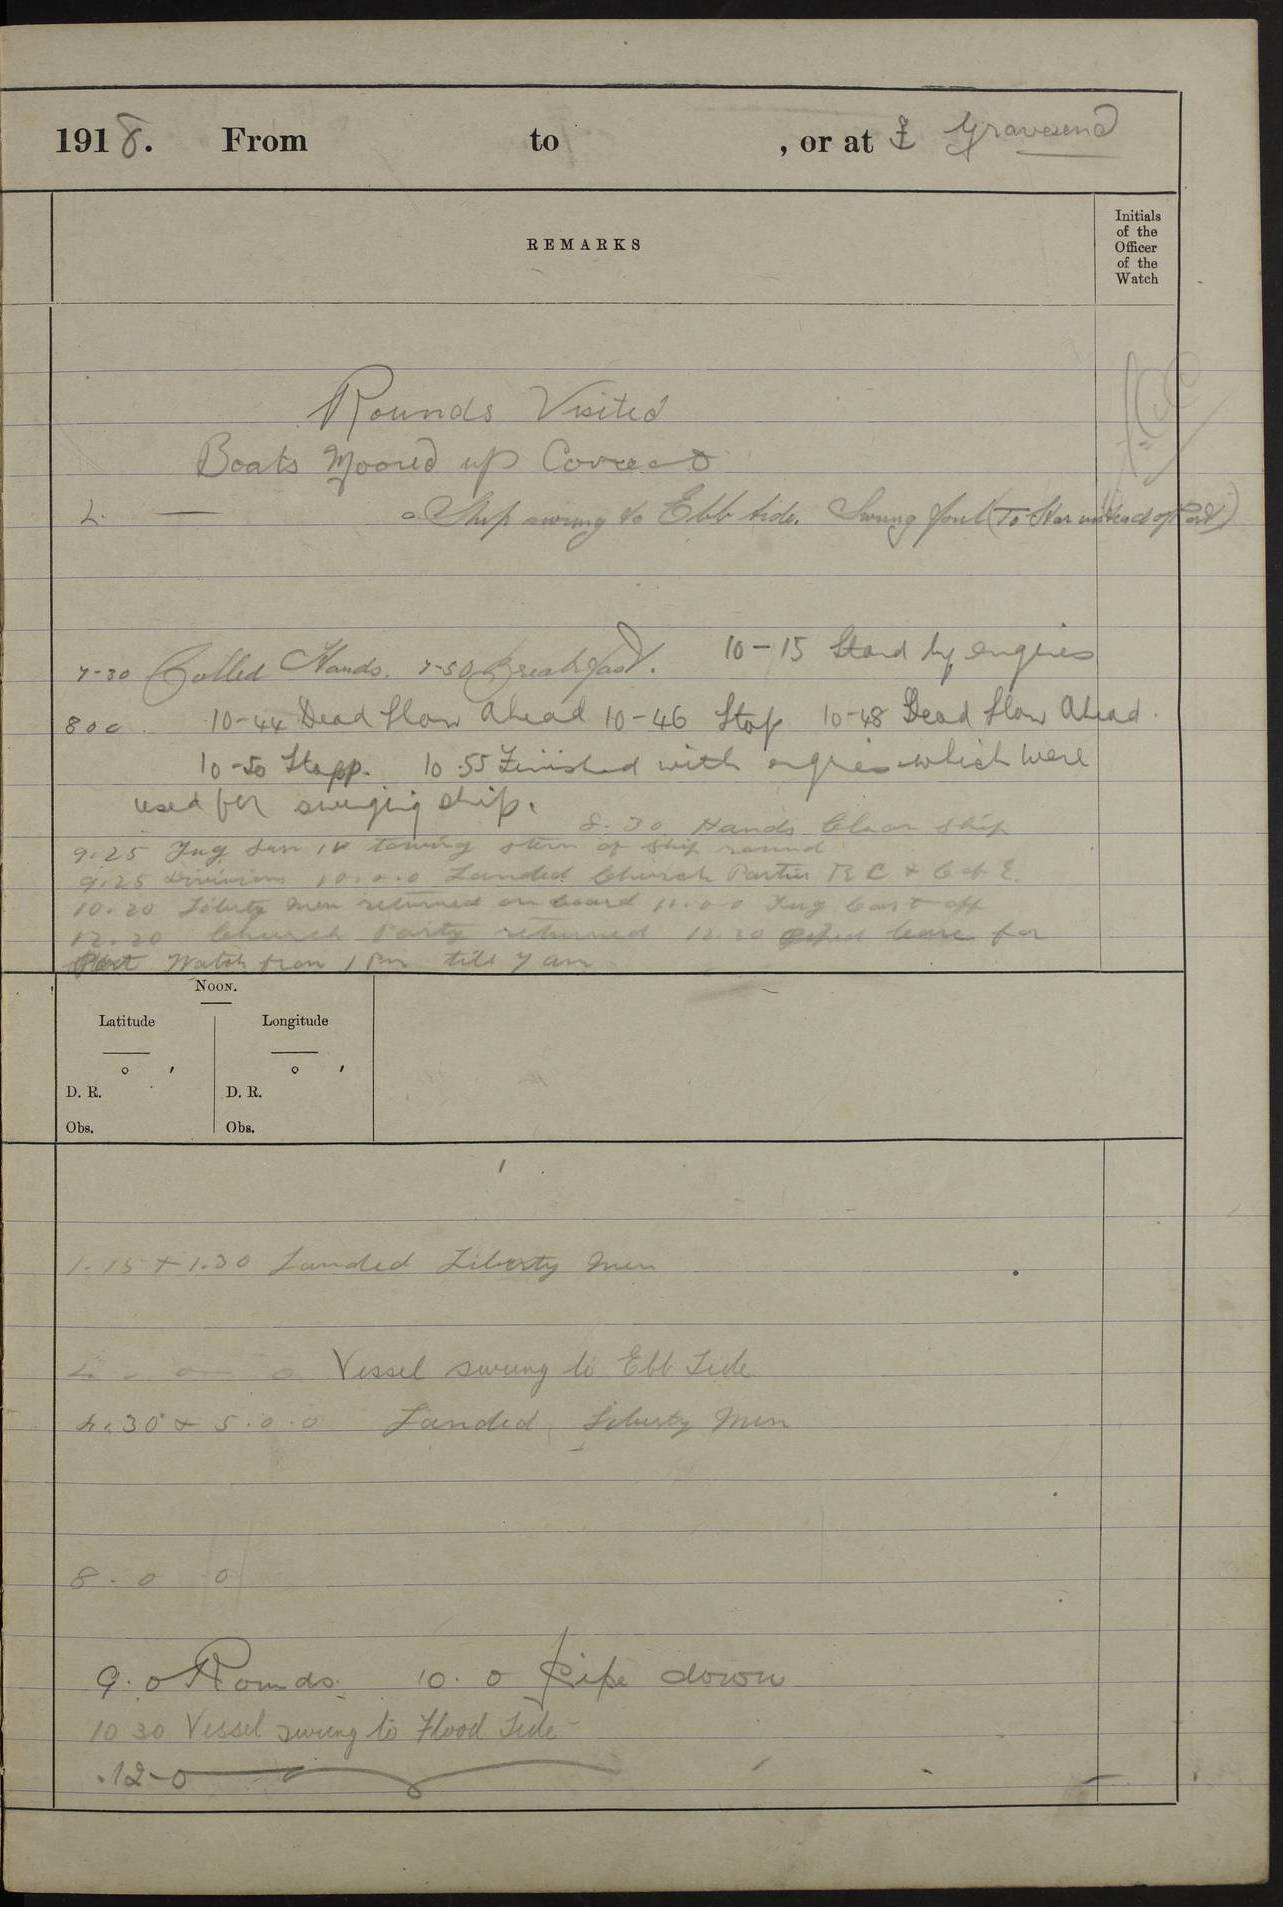 1918. From to , or at Gravesend
REMARKS
Initials
of the
Officer
of the
Watch
Rounds Visited
Boats Moored up Correct
4. — Ship swung to Ebb tide. Swung foul (To Star instead of Port)
7-30 Called Hands. 7-50 Breakfast. 10-15 Stand by engines
8 0 0 10-44 Dead Slow Ahead 10-46 Stop 10-48 Dead Slow Ahead.
10-50 Stopp. 10.55 Finished with engines which were
used for swinging ship.
8.30 Hands Clean Ship
9.25 Tug Sun IV towing stern of ship round
9.25 Divisions 10.0.0 Landed Church Parties R C & C of E.
10.20 Liberty Men returned on board 11.0.0 Tug Cast off
12.20 Church Party returned 12.30 piped leave for
Port Watch from 1 Pm till 7 am
NOON.
Latitude Longitude
° ′ ° ′
D. R. D. R.
Obs. Obs.
1.15 + 1.30 Landed Liberty Men
4 - 0 - 0 Vessel swung to Ebb Tide
4.30 & 5.0.0 Landed Liberty Men
8 . 0 0
9.0 Rounds. 10. 0 Pipe down
10 30 Vessel swung to Flood Tide-
.12-0